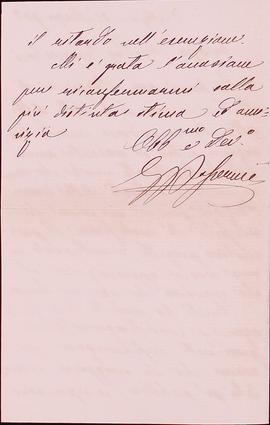 il ritardo nell'esenzione.
Mi è grata l'occasione
per riconfermarmi colla
più distinta stima ed ami-
cizia
Obb.mo e Dev.o